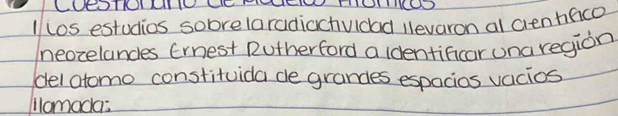 Cuestionario de Modelos Atomicos
1 Los estudios sobre la radiactividad llevaron al cientifico
neozelandes Ernest Rutherford a identificar una región
del atomo constituida de grandes espacios vacios
llamada: